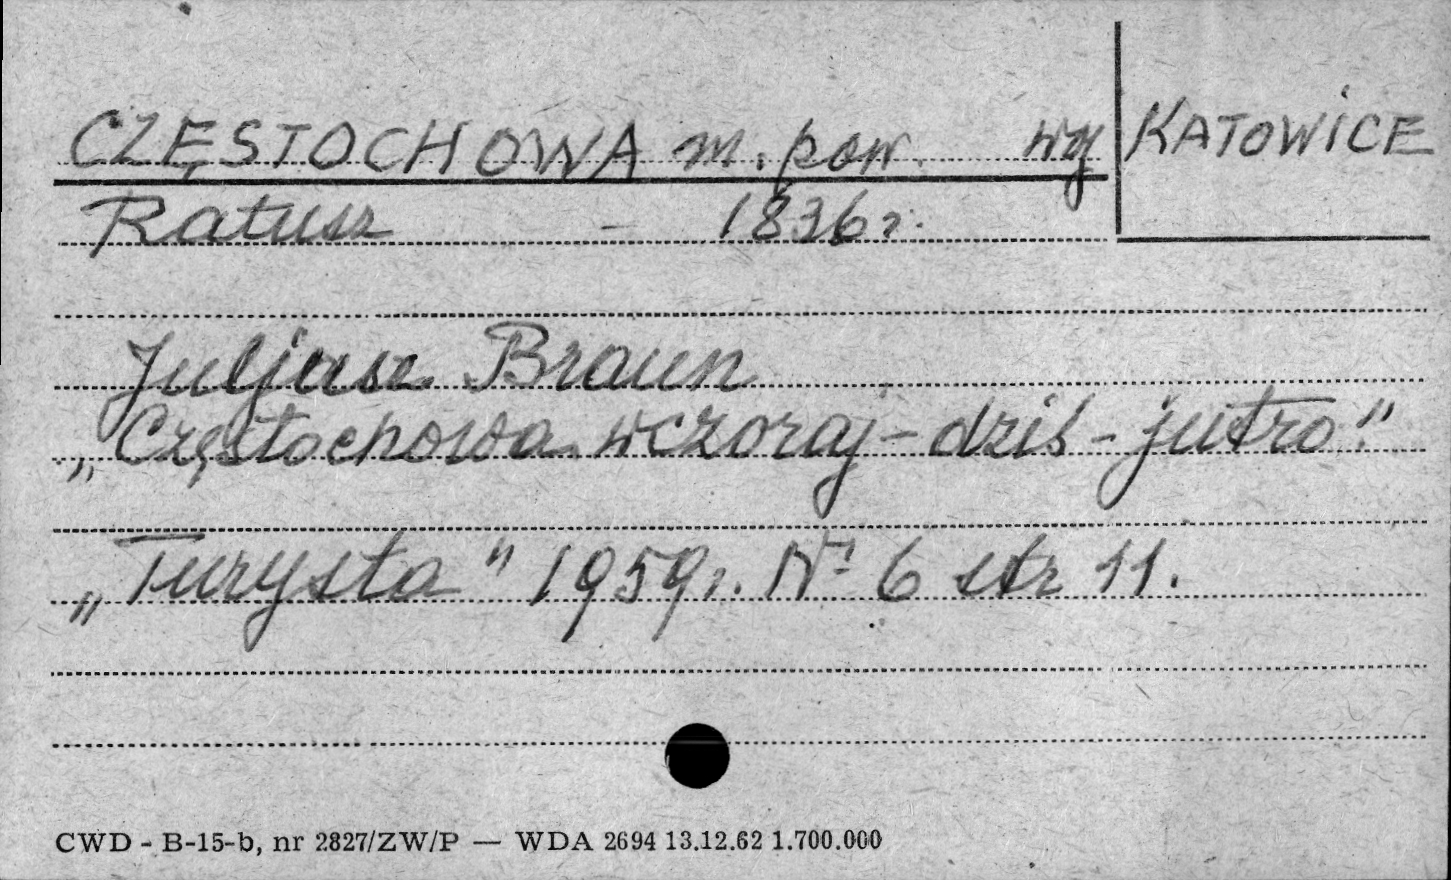 CZĘSTOCHOWA m. pow. woj KATOWICE
Ratusz - 1836 r.
Juljusz Braun
„Częstochowa wczoraj - dziś - jutro."
„Turysta" 1959 r. Nr 6 str 11.
CWD - B-15-b, nr 2827/ZW/P — WDA 2694 13.12.62 1.700.000